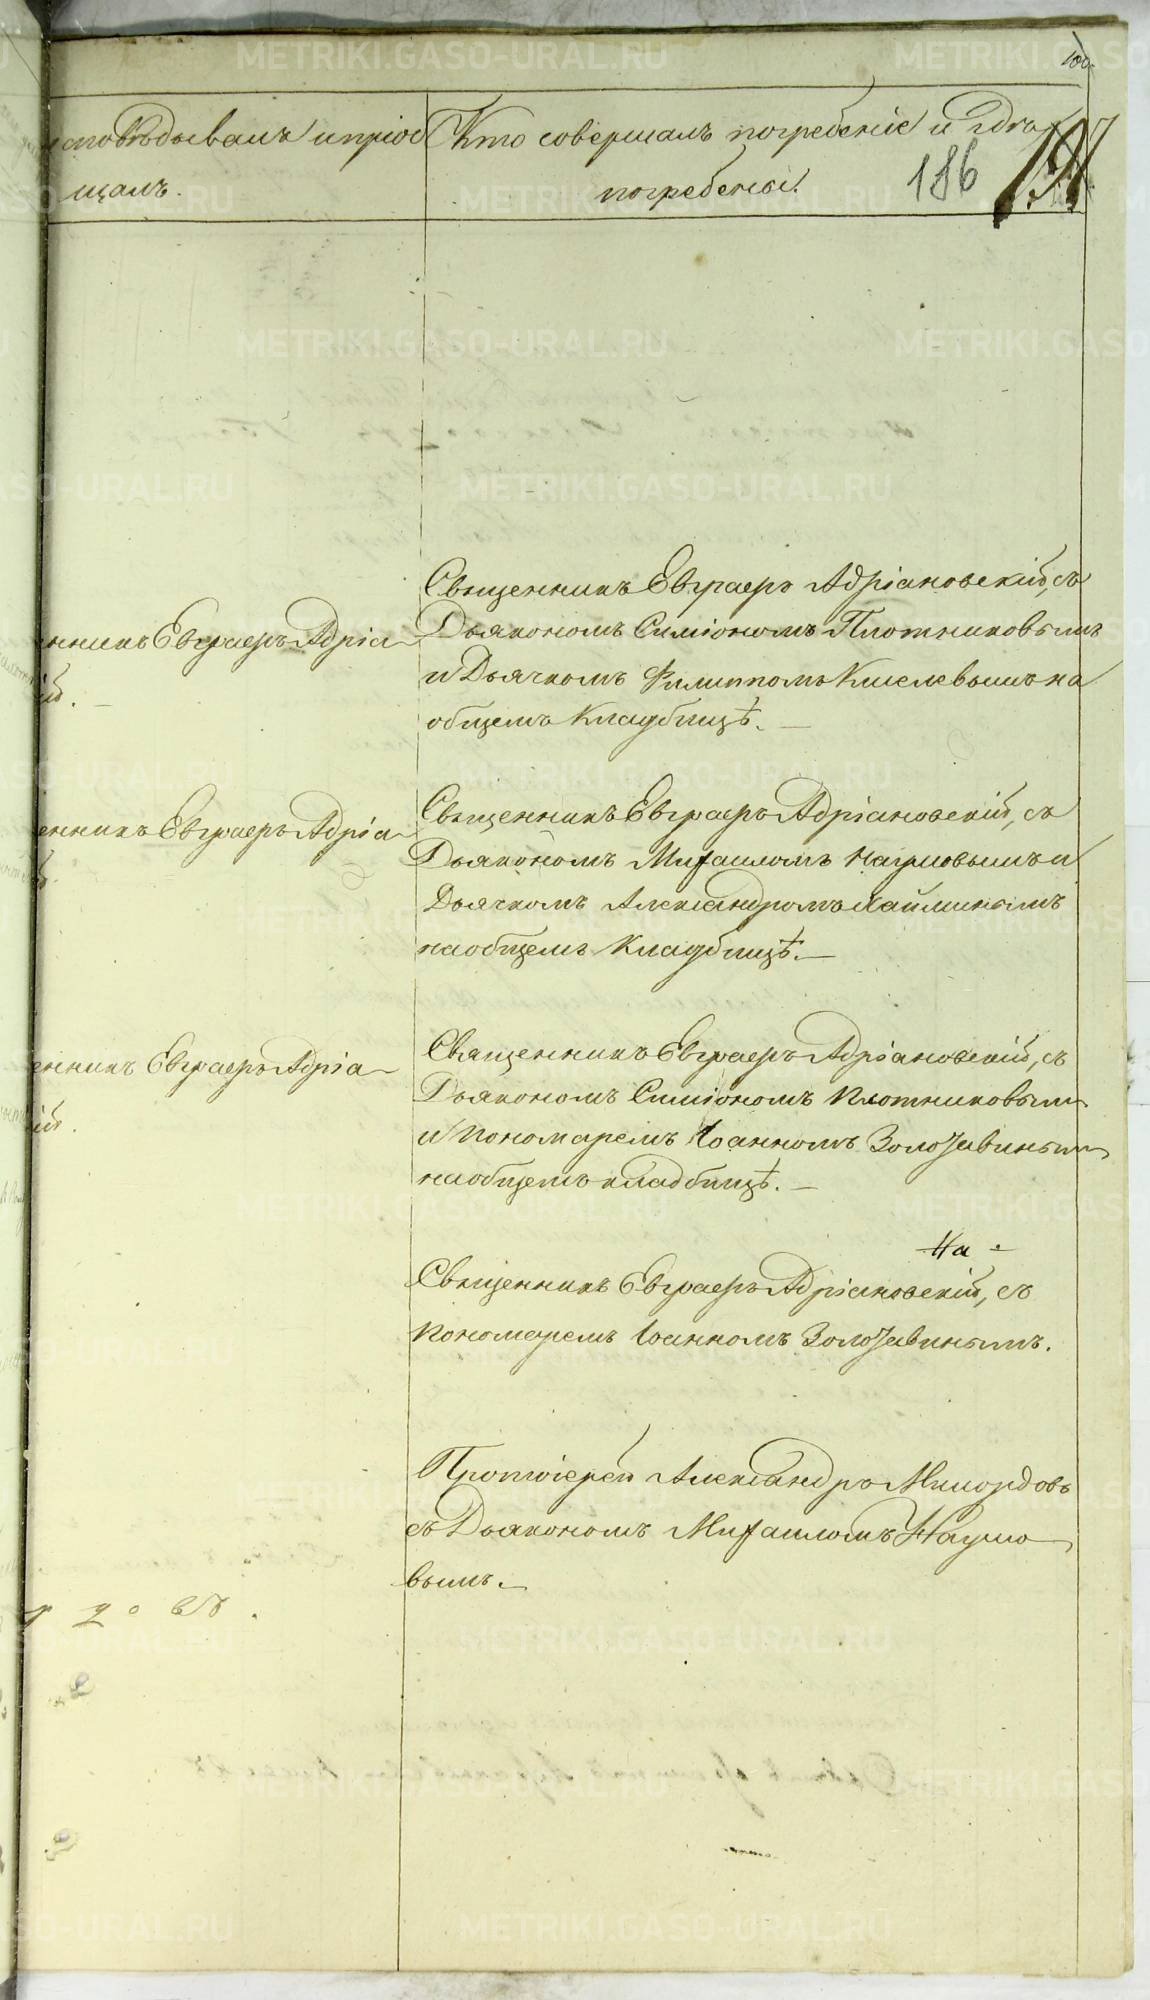 100.
исповѣдывалъ и пріоб
щалъ.
Кто совершалъ погребеніе и гдѣ
погребены.
186
197
енникъ Евграфъ Адріа
ій.
Священникъ Евграфъ Адріановскій, съ
Дьякономъ Симіономъ Плотниковымъ
и Дьячкомъ Филиппомъ Киселевымъ на
общемъ Кладбищѣ.
енникъ Евграфъ Адріа
Священникъ Евграфъ Адріановскій, съ
Дьякономъ Михаиломъ Наумовымъ и
Дьячкомъ Александромъ Хайминымъ
на общемъ Кладбищѣ.
енникъ Евграфъ Адріа
ій.
Священникъ Евграфъ Адріановскій, съ
Дьякономъ Симіономъ Плотниковымъ
и Пономаремъ Іоанномъ Золотавинымъ
на общемъ кладбищѣ.
На
Священникъ Евграфъ Адріановскій, съ
Пономаремъ Іоанномъ Золотавинымъ.
Протоіерей Александръ Милордовъ
съ Дьякономъ Михаиломъ Наумо
вымъ.
довъ.
METRIKI.GASO-URAL.RU